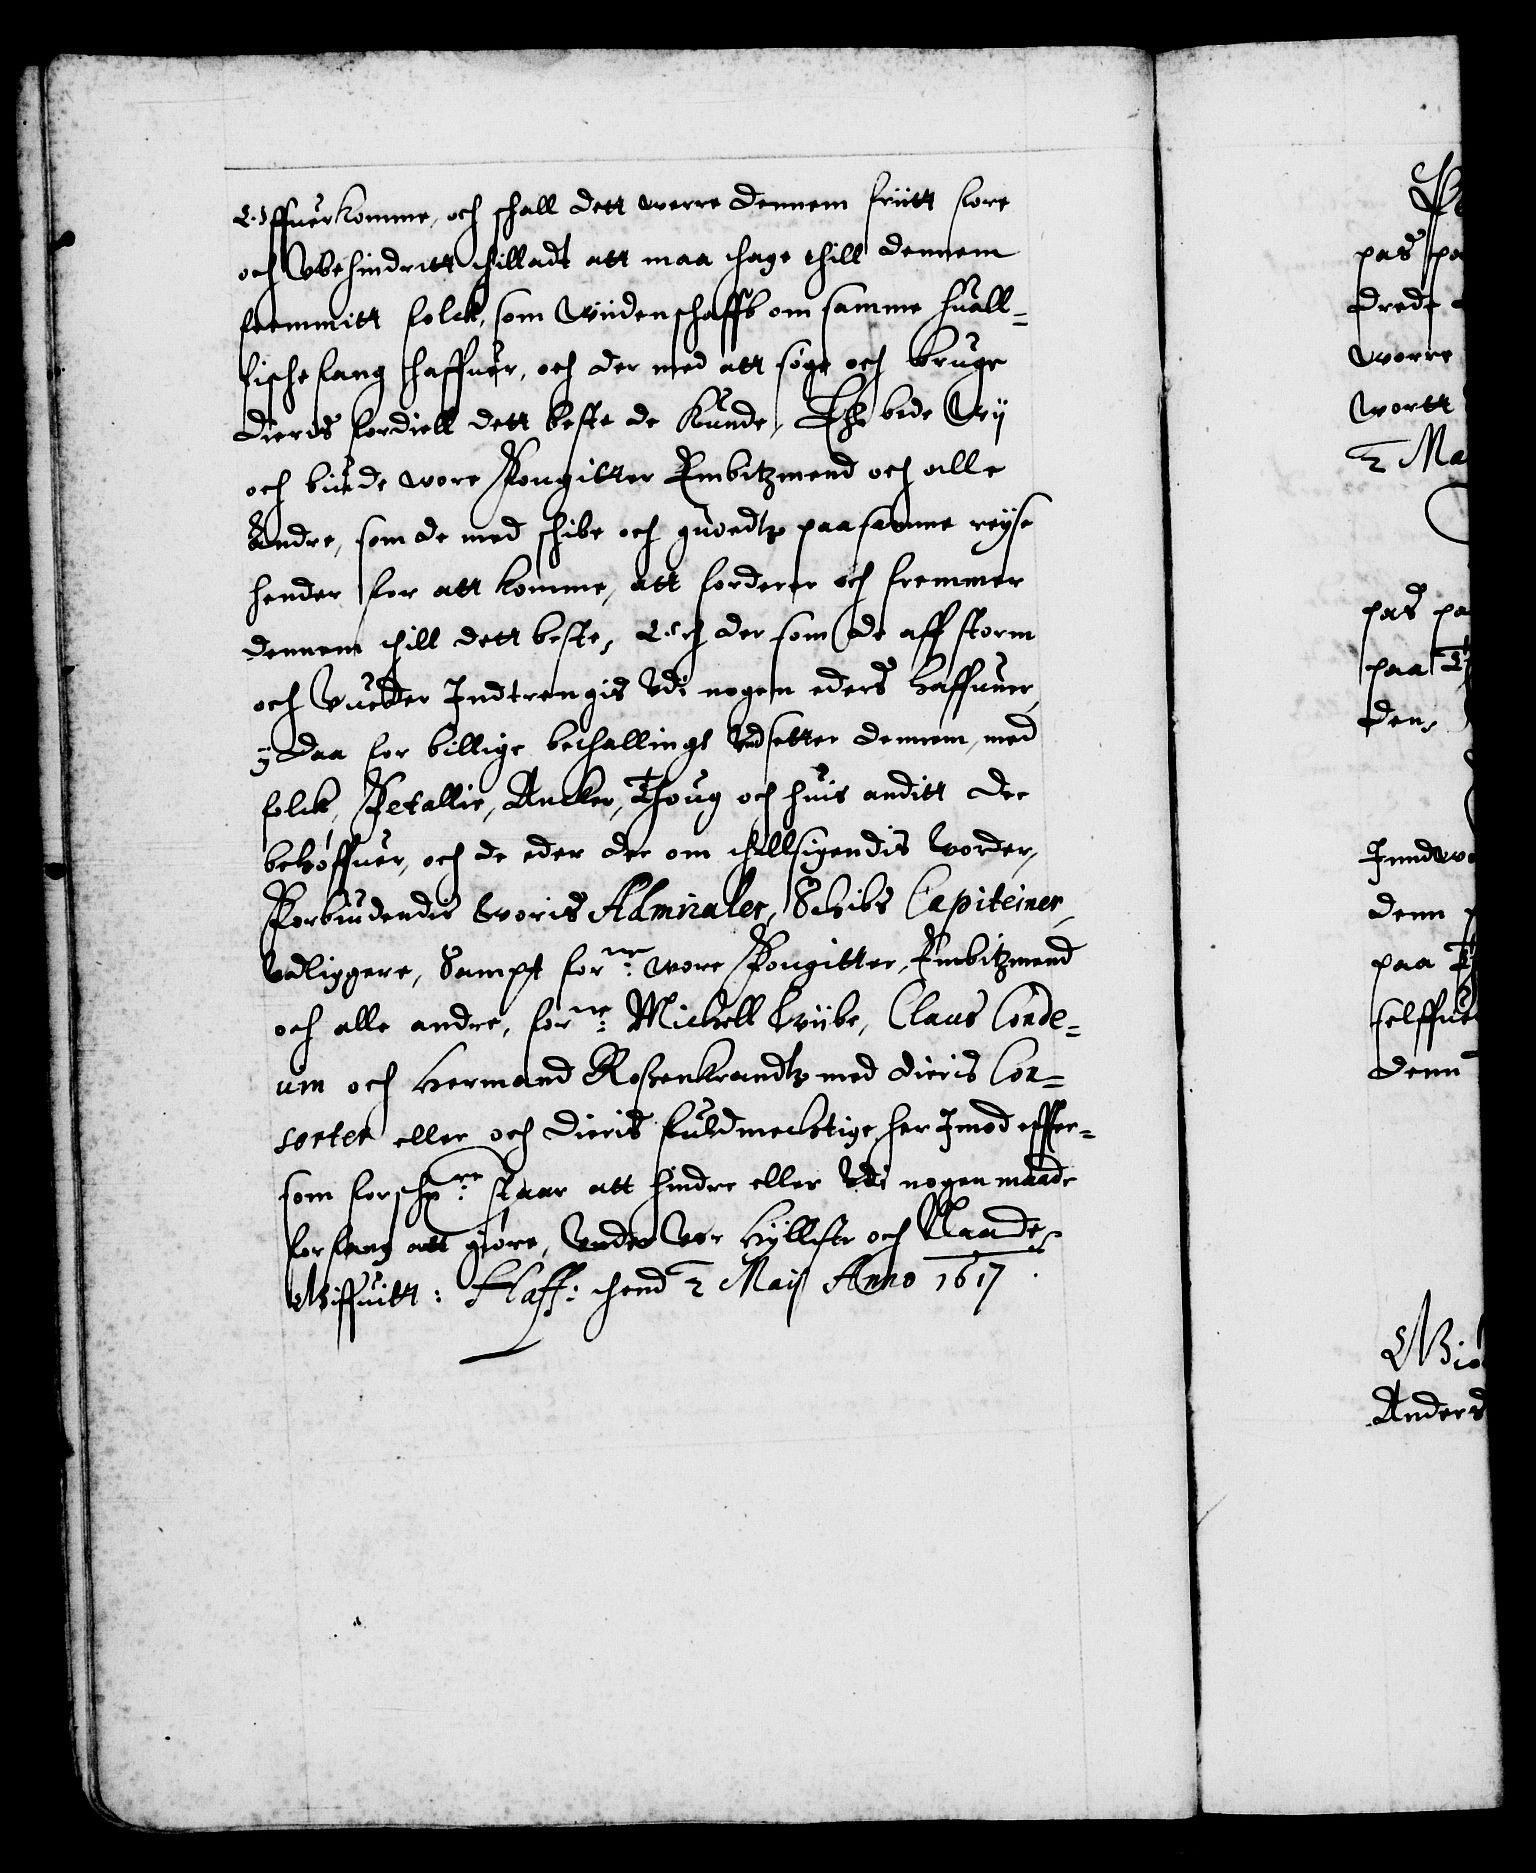 Offuerkomme, och schall dett werre dennem friitt fore
och Vbehindritt thilladt att maa thage thill dennem
fremmitt folck, som Viidenschaffb om samme huall-
fische fang haffuer, och der med att søge och bruge
dieris fordiell dett beste de Kunde, Thj bede Wij
och biude wore Fougitter Embitzmend och alle
Andre, som de med schibe och guodtz paa samme reyse
hender for att komme, att forderer och fremmer
dennem thill dett beste, Och der som de aff storm
och Vueder Indtrengis Vdi nogen eders haffuner
ij daa for billige bethallingt Vndsetter dennem, med
folck, Fetallie, Ancker, Thoug och huis anditt dee
behøffuer, och de eder dee om thillsigendis Vorder,
Forbiudendis Woris Admiraler, Schibs Capiteiner,
Vdliggere, Sampt forne: wore Fougitter, Embitzmend
och alle andre, forne: Michell Wiibe, Claus Conde-
uin och Hermand Rosenkrandtz med dieris Con-
sorter eller och dieris fuldmechtige her Imod effter-
som forschr:re staar att hindre eller Vdi nogen maade
forfang att giøre, Vnder Vor Hyllist och Naade,
Giffuitt: Haff: thend 2 Maij Anno 1617.
pas
drede
Worre
Wortt
2 Ma
pas pa
paa
den,
denn
paa
selffue
denn
Anders